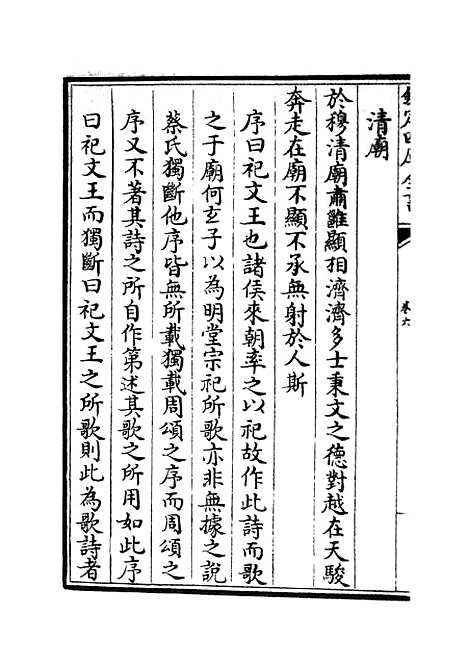 欽定四庫全書
卷六
清廟
於穆清廟肅雝顯相濟濟多士秉文之德對越在天駿
奔走在廟不顯不承無射於人斯
序曰祀文王也諸侯來朝率之以祀故作此詩而歌
之于廟何玄子以為明堂宗祀所歌亦非無據之說
蔡氏獨斷他序皆無所載獨載周頌之序而周頌之
序又不著其詩之所自作第述其歌之所用如此序
曰祀文王而獨斷曰祀文王之所歌則此為歌詩者